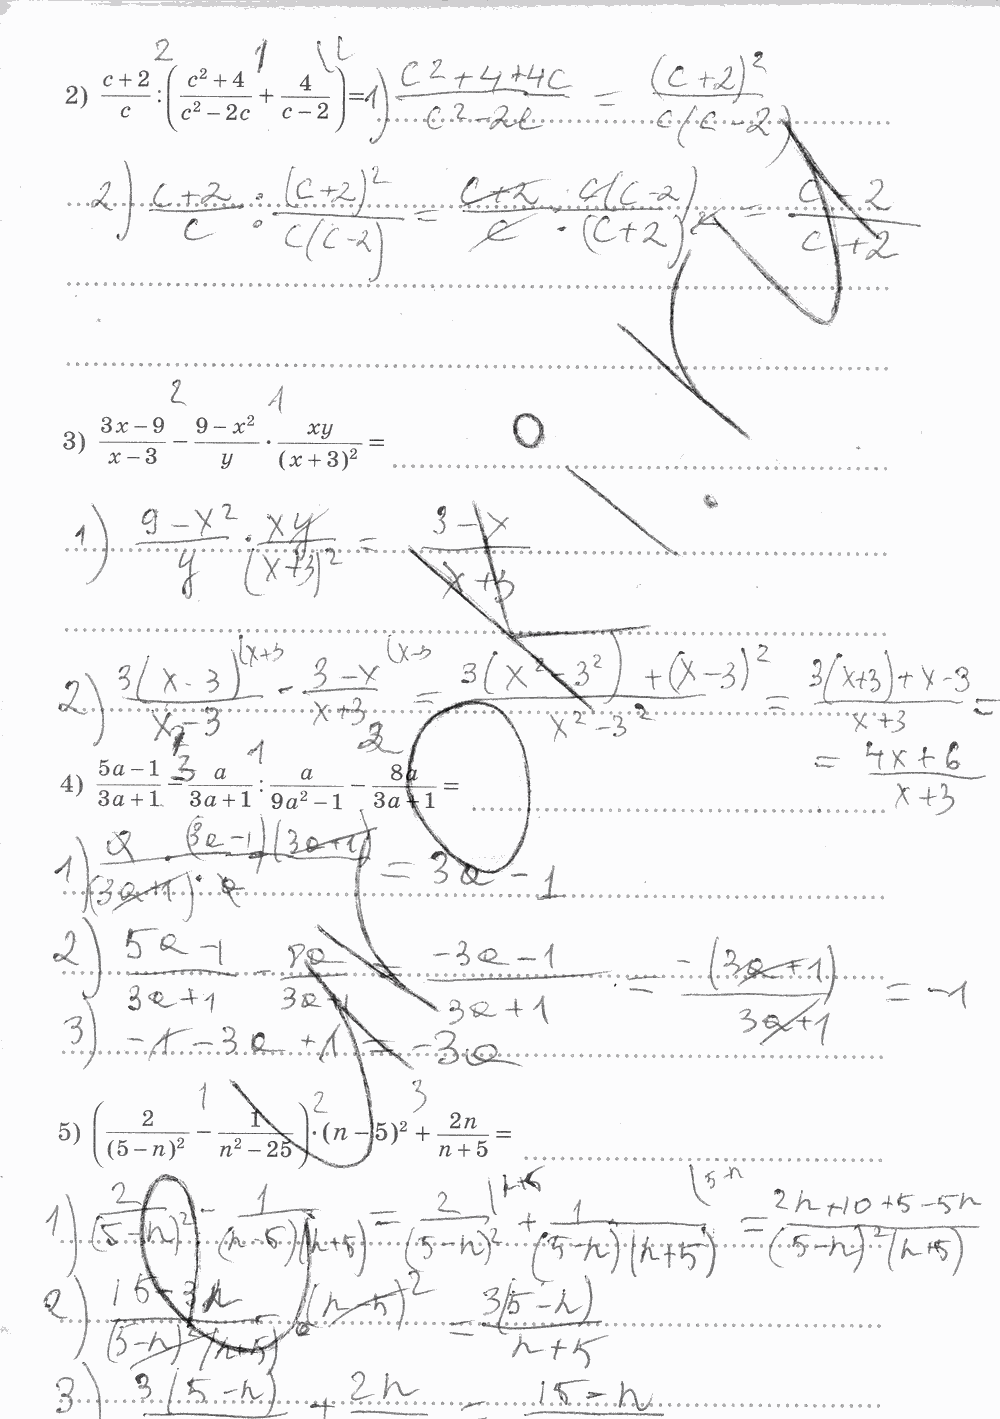 2) (c+2)/c : ((c²+4)/(c²−2c) + 4/(c−2)) = 1) (c²+4+4c)/(c²−2c) = (c+2)²/(c(c−2))
2) (c+2)/c : (c+2)²/(c(c−2)) = (c+2 · c(c−2))/(c · (c+2)²) = (c−2)/(c+2)
3) (3x−9)/(x−3) − (9−x²)/y · xy/(x+3)² =
1) (9−x²)/y · xy/(x+3)² = (3−x)/(x+3)
2) 3(x−3)/(x−3) − (3−x)/(x+3) = (3(x²−3²)+(x−3)²)/(x²−3²) = (3(x+3)+x−3)/(x+3) =
= (4x+6)/(x+3)
4) (5a−1)/(3a+1) − a/(3a+1) : a/(9a²−1) − 8a/(3a+1) =
1) (a · (3a−1)(3a+1))/((3a+1) · a) = 3a−1
2) (5a−1)/(3a+1) − 8a/(3a+1) = (−3a−1)/(3a+1) = −(3a+1)/(3a+1) = −1
3) −1−3a+1 = −3a
5) (2/(5−n)² − 1/(n²−25)) · (n−5)² + 2n/(n+5) =
1) 2/(5−n)² − 1/((n−5)(n+5)) = 2/(5−n)² + 1/((5−n)(n+5)) = (2n+10+5−5n)/((5−n)²(n+5))
2) (15−3n)/((5−n)²(n+5)) · (n−5)² = 3(5−n)/(n+5)
3) 3(5−n) + 2n = 15−n